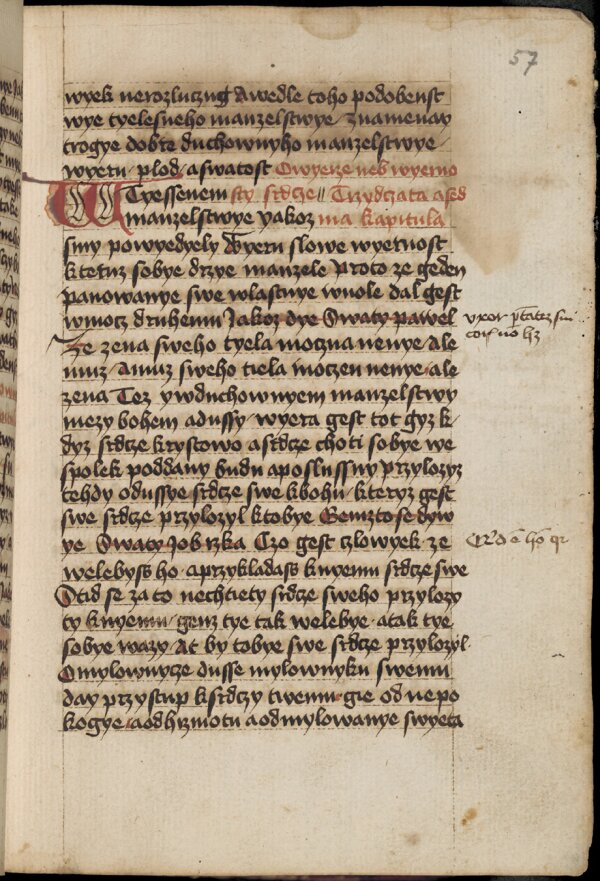 57
wyek nerozlucżng A wedle toho podobenst
wye tyelesneho manzelstwye · znamenay
trogye dobre duchownyho manzelstwye ·
wyeru · plod · a swatost O wyerze neb wyerno
W Tyessenem sty srdcze Trzydczata a sed
manzelstwye yakoz ma kapitula
smy powyedyely Wyeru slowe wyernost
kteruz sobye drzye manzele Proto ze geden
panowanye swe wlastnye wuole dal gest
w mocz druhemu Jakoz dye Swaty pawel
Ze zena sweho tyela moczna nenye Ale
muz · A muz sweho tiela moczen nenye · ale
zena Tez y w duchownyem manzelstwy
mezy bohem a dussy · wyera gest tot gyz k
dyz srdcze krystowo a srdcze choti sobye we
spolek poddany budu a poslussny przylozyz
tehdy o dussye srdcze swe k bohu · kteryz gest
swe srdcze przylozyl k tobye Gemuzto se dyw
ye Swaty Job rzka Czo gest czlowyek ze
welebyss ho · a przykladass k nyemu srdcze swe
Stid se za to nechtiety srdcze sweho przylozy
ty k nyemu · genz tye tak welebye · a tak tye
sobye wazy · At by tobye swe srdcze przylozyl ·
O mylownycze dusse mylownyku swemu
day przystup k srdczy twemu · gie od nepo
kogye · a od hrzmotu a od mylowanye swyeta
vxor